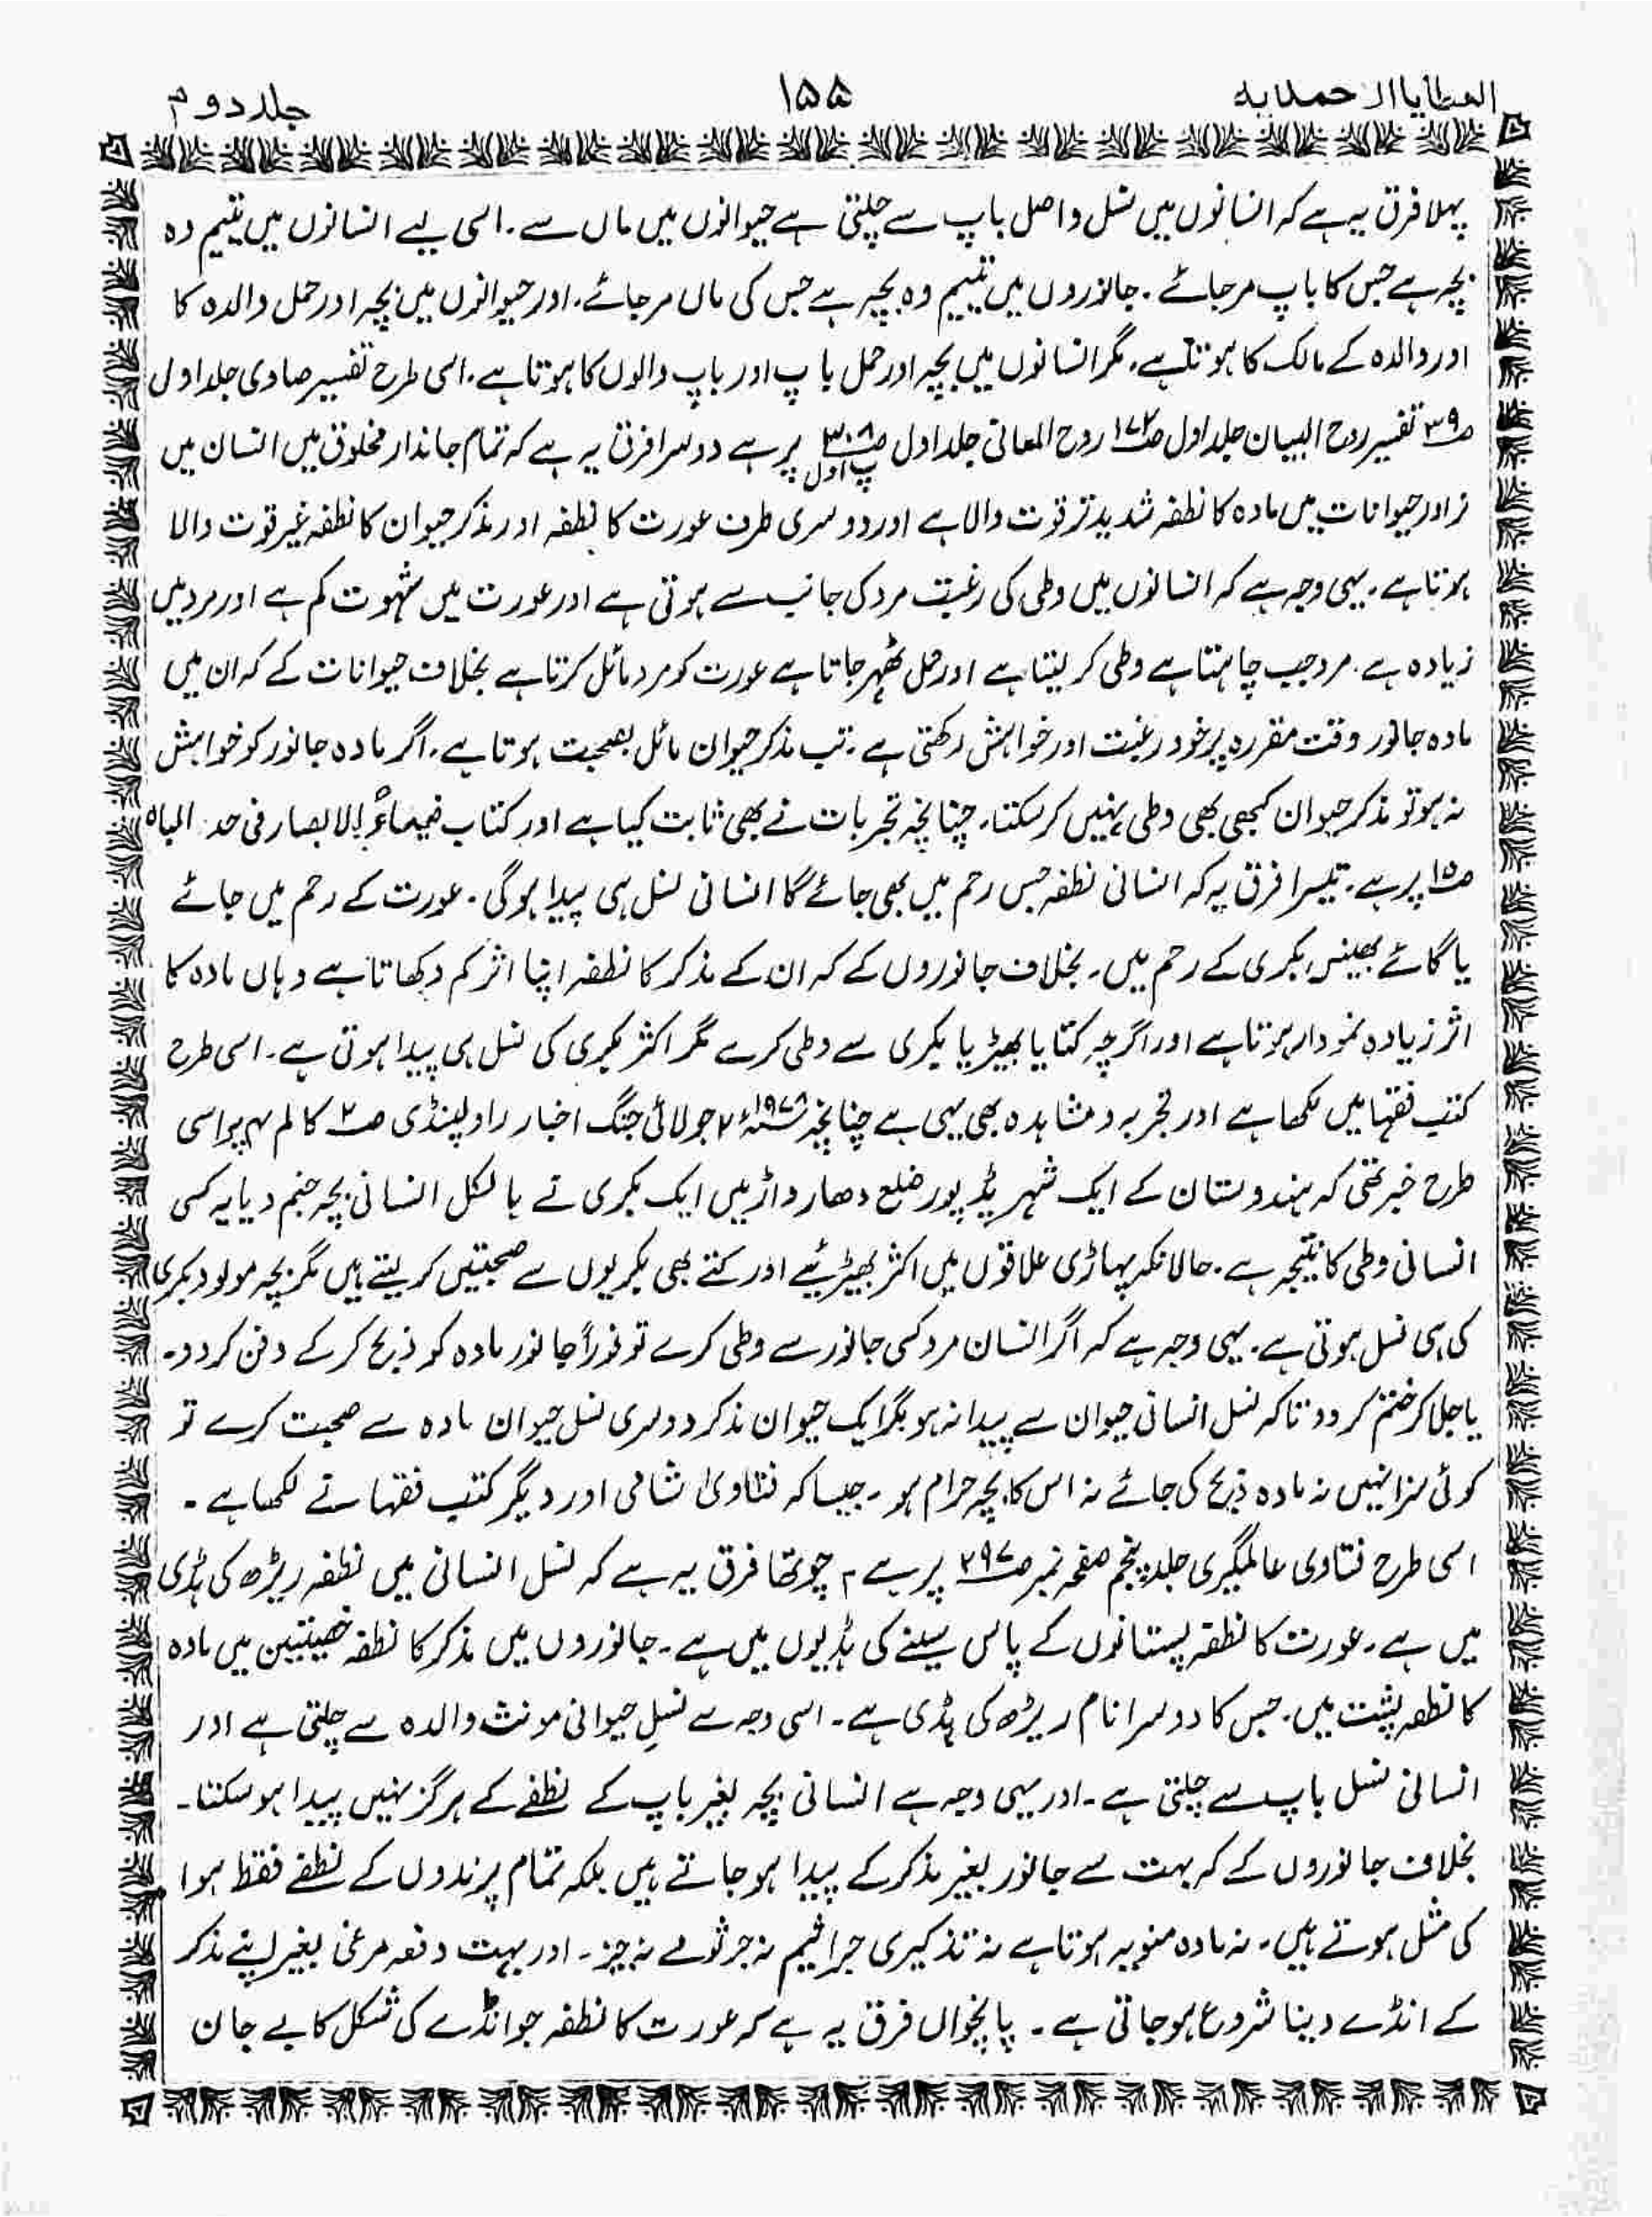 العطایا الاحمدیہ
۱۵۵
جلد دوم
پہلا فرق یہ ہے کہ انسانوں میں نسل و اصل باپ سے چلتی ہے حیوانوں میں ماں سے۔ اسی لیے انسانوں میں یتیم وہ
بچہ ہے جس کا باپ مر جائے۔ جانوروں میں یتیم وہ بچہ ہے جس کی ماں مر جائے۔ اور حیوانوں میں بچہ اور حمل والدہ کا
اور والدہ کے مالک کا ہوتا ہے۔ مگر انسانوں میں بچہ اور حمل باپ اور باپ والوں کا ہوتا ہے۔ اسی طرح تفسیر صاوی جلد اول
صـ۳۹ تفسیر روح البیان جلد اول صـ۱۷۲ روح المعانی جلد اول صـ۳۰۸ پ اول پر ہے دوسرا فرق یہ ہے کہ تمام جاندار مخلوق میں انسان میں
نر اور حیوانات میں مادہ کا نطفہ شدید تر قوت والا ہے اور دوسری طرف عورت کا نطفہ اور مذکر حیوان کا نطفہ غیر قوت والا
ہوتا ہے۔ یہی وجہ ہے کہ انسانوں میں وطی کی رغبت مرد کی جانب سے ہوتی ہے اور عورت میں شہوت کم ہے اور مرد میں
زیادہ ہے۔ مرد جب چاہتا ہے وطی کر لیتا ہے اور حمل ٹھہر جاتا ہے عورت کو مرد مائل کرتا ہے بخلاف حیوانات کے کہ ان میں
مادہ جانور وقت مقررہ پر خود رغبت اور خواہش رکھتی ہے۔ تب مذکر حیوان مائل بصحبت ہوتا ہے۔ اگر مادہ جانور کو خواہش
نہ ہو تو مذکر حیوان کبھی بھی وطی نہیں کر سکتا۔ چنانچہ تجربات نے بھی ثابت کیا ہے اور کتاب ضیاءُ الابصار فی حد الباہ
صـ۱۵ پر ہے۔ تیسرا فرق یہ کہ انسانی نطفہ جس رحم میں بھی جائے گا انسانی نسل ہی پیدا ہوگی۔ عورت کے رحم میں جائے
یا گائے بھینس بکری کے رحم میں۔ بخلاف جانوروں کے کہ ان کے مذکر کا نطفہ اپنا اثر کم دکھاتا ہے وہاں مادہ کا
اثر زیادہ نمودار ہوتا ہے اور اگرچہ کتا یا بھیڑیا بکری سے وطی کرے مگر اکثر بکری کی نسل ہی پیدا ہوتی ہے۔ اسی طرح
کتب فقہا میں لکھا ہے اور تجربہ و مشاہدہ بھی یہی ہے چنانچہ ۱۹۷۸ء ۷ جولائی جنگ اخبار راولپنڈی صـ۲ کالم ۴ پر اسی
طرح خبر تھی کہ ہندوستان کے ایک شہر پڈ پور ضلع دھارواڑ میں ایک بکری نے بالکل انسانی بچہ جنم دیا یہ کسی
انسانی وطی کا نتیجہ ہے۔ حالانکہ پہاڑی علاقوں میں اکثر بھیڑیئے اور کتے بھی بکریوں سے صحبتیں کر لیتے ہیں مگر بچہ مولود بکری
کی ہی نسل ہوتی ہے۔ یہی وجہ ہے کہ اگر انسان مرد کسی جانور سے وطی کرے تو فوراً جانور مادہ کو ذبح کر کے دفن کر دو۔
یا جلا کر ختم کر دو تاکہ نسل انسانی حیوان سے پیدا نہ ہو مگر ایک حیوان مذکر دوسری نسل حیوان مادہ سے صحبت کرے تو
کوئی سزا نہیں نہ مادہ ذبح کی جائے نہ اس کا بچہ حرام ہو۔ جیسا کہ فتاویٰ شامی اور دیگر کتب فقہا نے لکھا ہے۔
اسی طرح فتاوی عالمگیری جلد پنجم صفحہ نمبر صـ۲۹۷ پر ہے۔ چوتھا فرق یہ ہے کہ نسل انسانی میں نطفہ ریڑھ کی ہڈی
میں ہے۔ عورت کا نطفہ پستانوں کے پاس سینے کی ہڈیوں میں ہے۔ جانوروں میں مذکر کا نطفہ خصیتین میں مادہ
کا نطفہ پشت میں۔ جس کا دوسرا نام ریڑھ کی ہڈی ہے۔ اسی وجہ سے نسلِ حیوانی مونث والدہ سے چلتی ہے اور
انسانی نسل باپ سے چلتی ہے۔ اور یہی وجہ ہے انسانی بچہ بغیر باپ کے نطفے کے ہرگز نہیں پیدا ہو سکتا۔
بخلاف جانوروں کے کہ بہت سے جانور بغیر مذکر کے پیدا ہو جاتے ہیں بلکہ تمام پرندوں کے نطفے فقط ہوا
کی مثل ہوتے ہیں۔ نہ مادہ منویہ ہوتا ہے نہ تذکیری جراثیم نہ جرثومے نہ چیز۔ اور بہت دفعہ مرغی بغیر اپنے مذکر
کے انڈے دینا شروع ہو جاتی ہے۔ پانچواں فرق یہ ہے کہ عورت کا نطفہ جو انڈے کی شکل کا بے جان